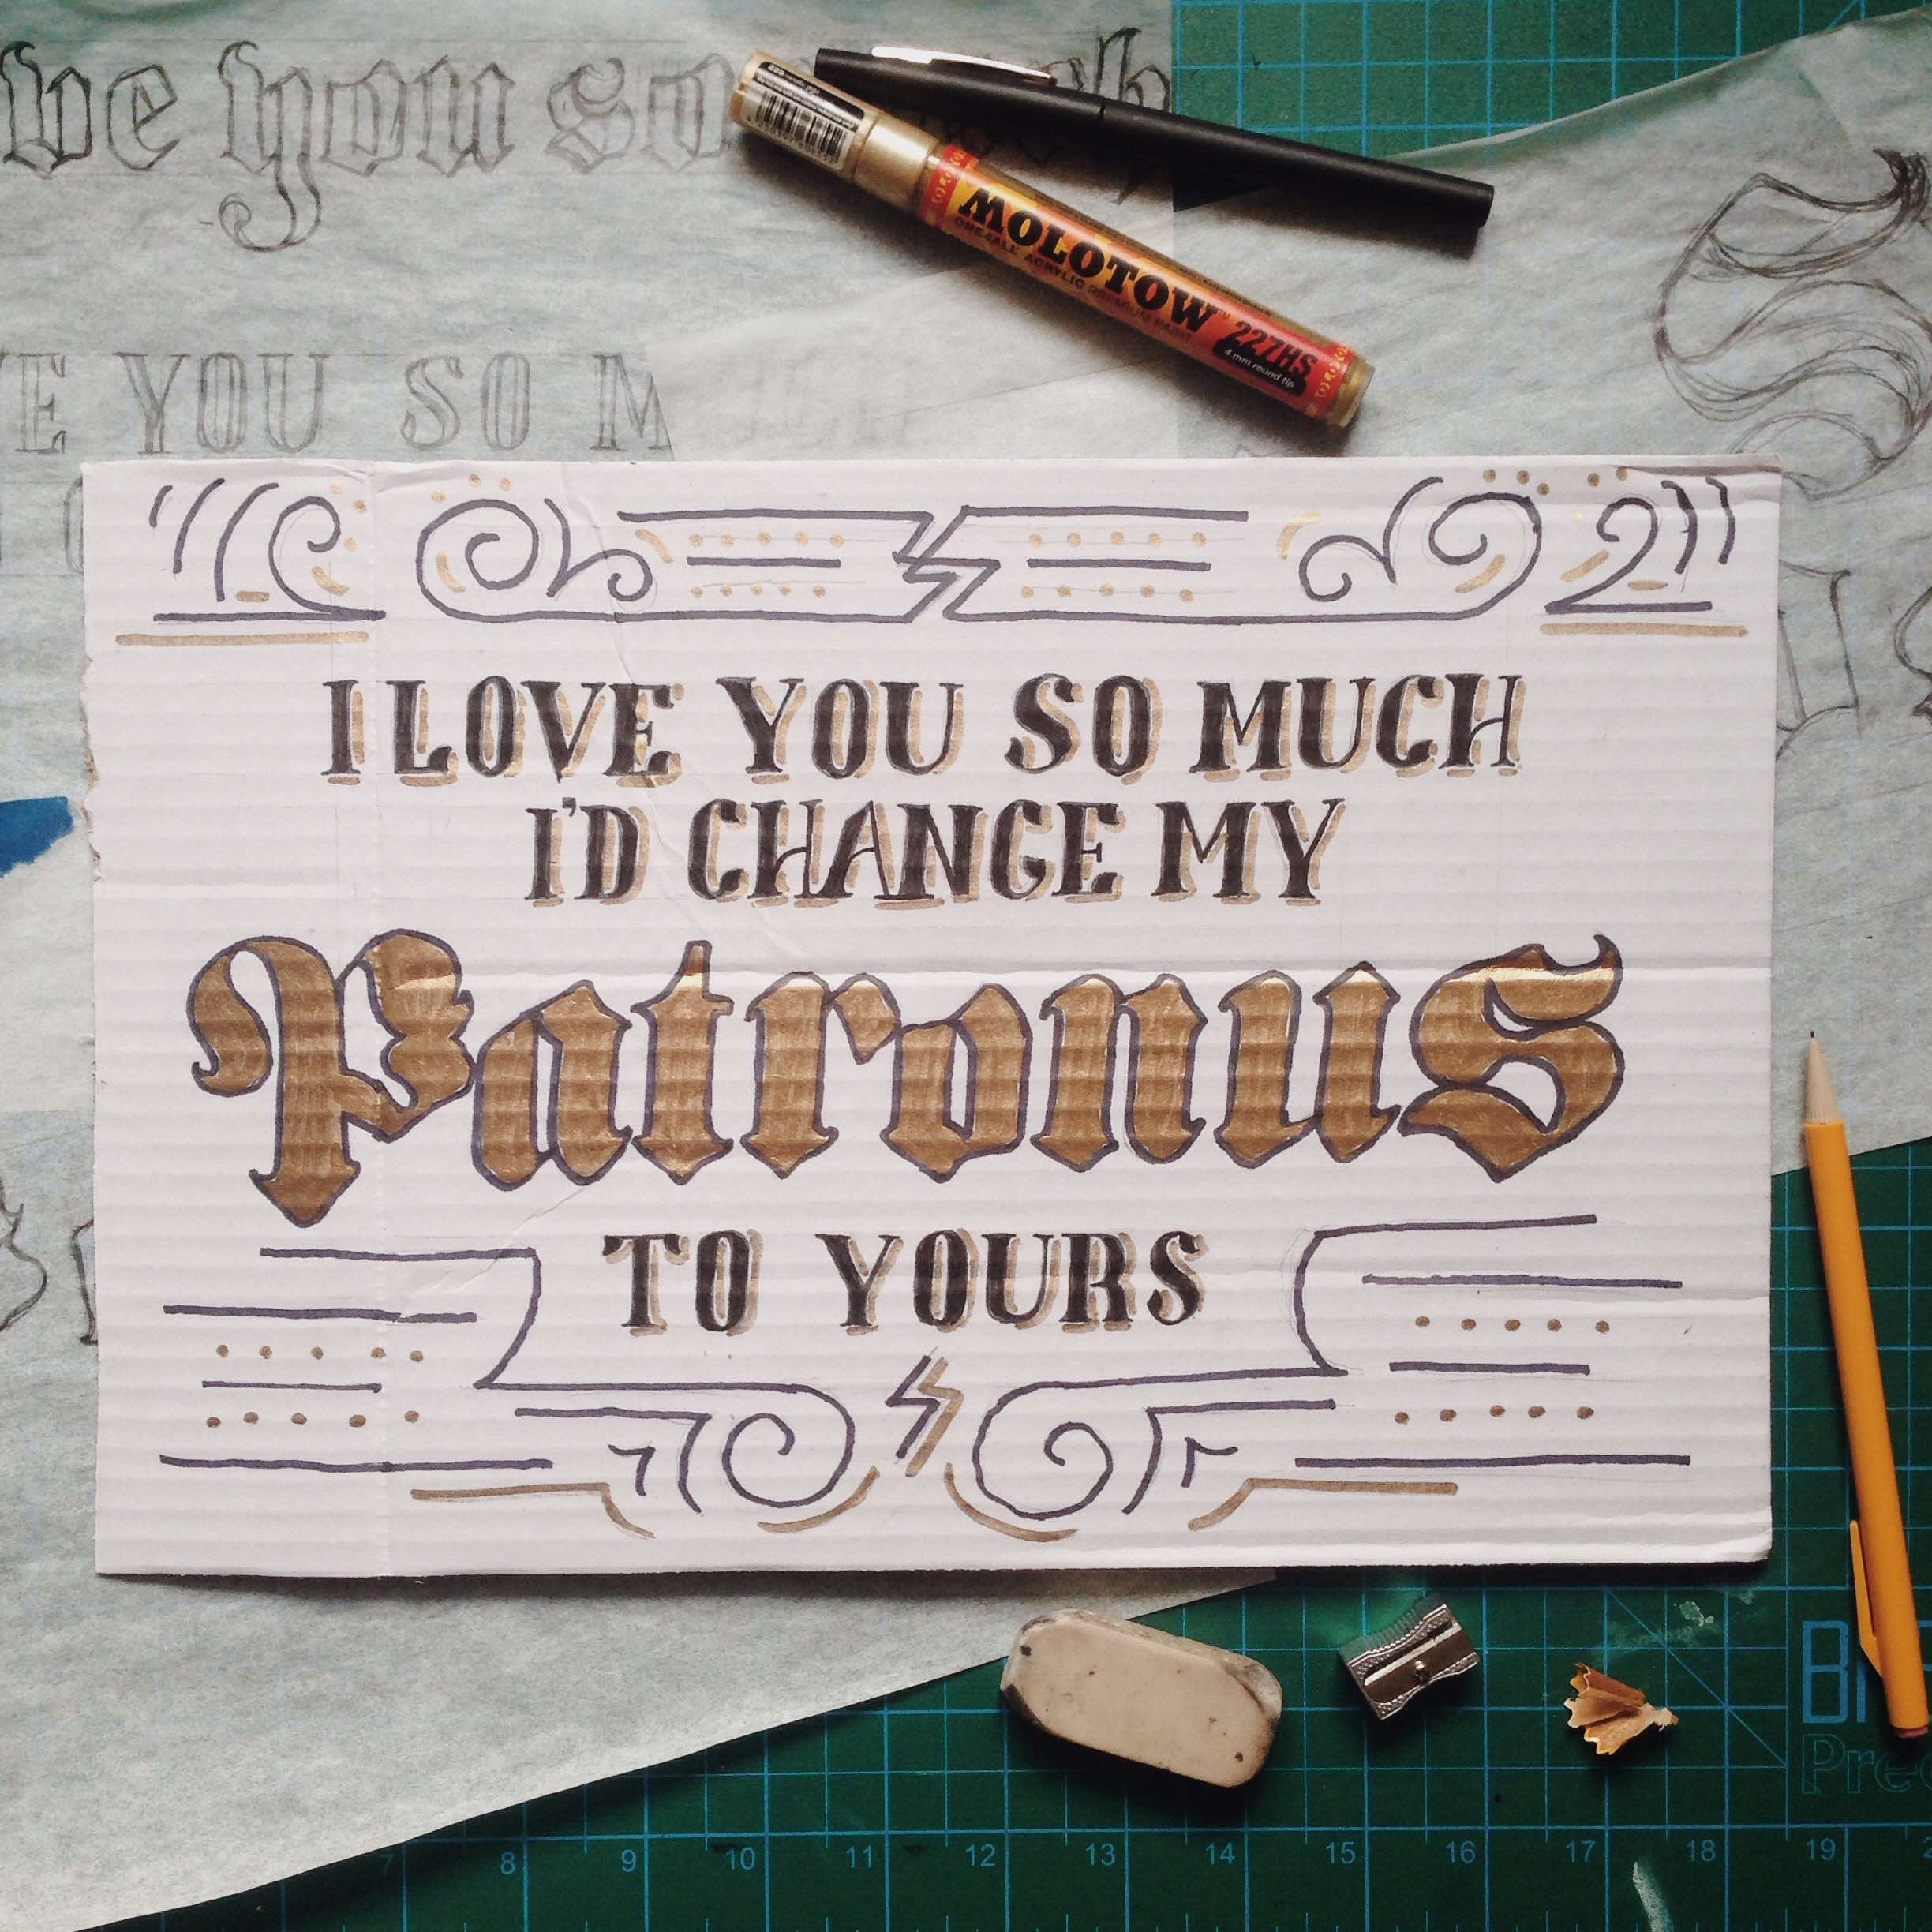 ve you so
MOLOTOW™
ONE4ALL ACRYLIC PREMIUM PAINT
227HS
4 mm round tip
VE YOU SO M
I LOVE YOU SO MUCH
I'D CHANGE MY
Patronus
TO YOURS
7 8 9 10 11 12 13 14 15 16 17 18 19